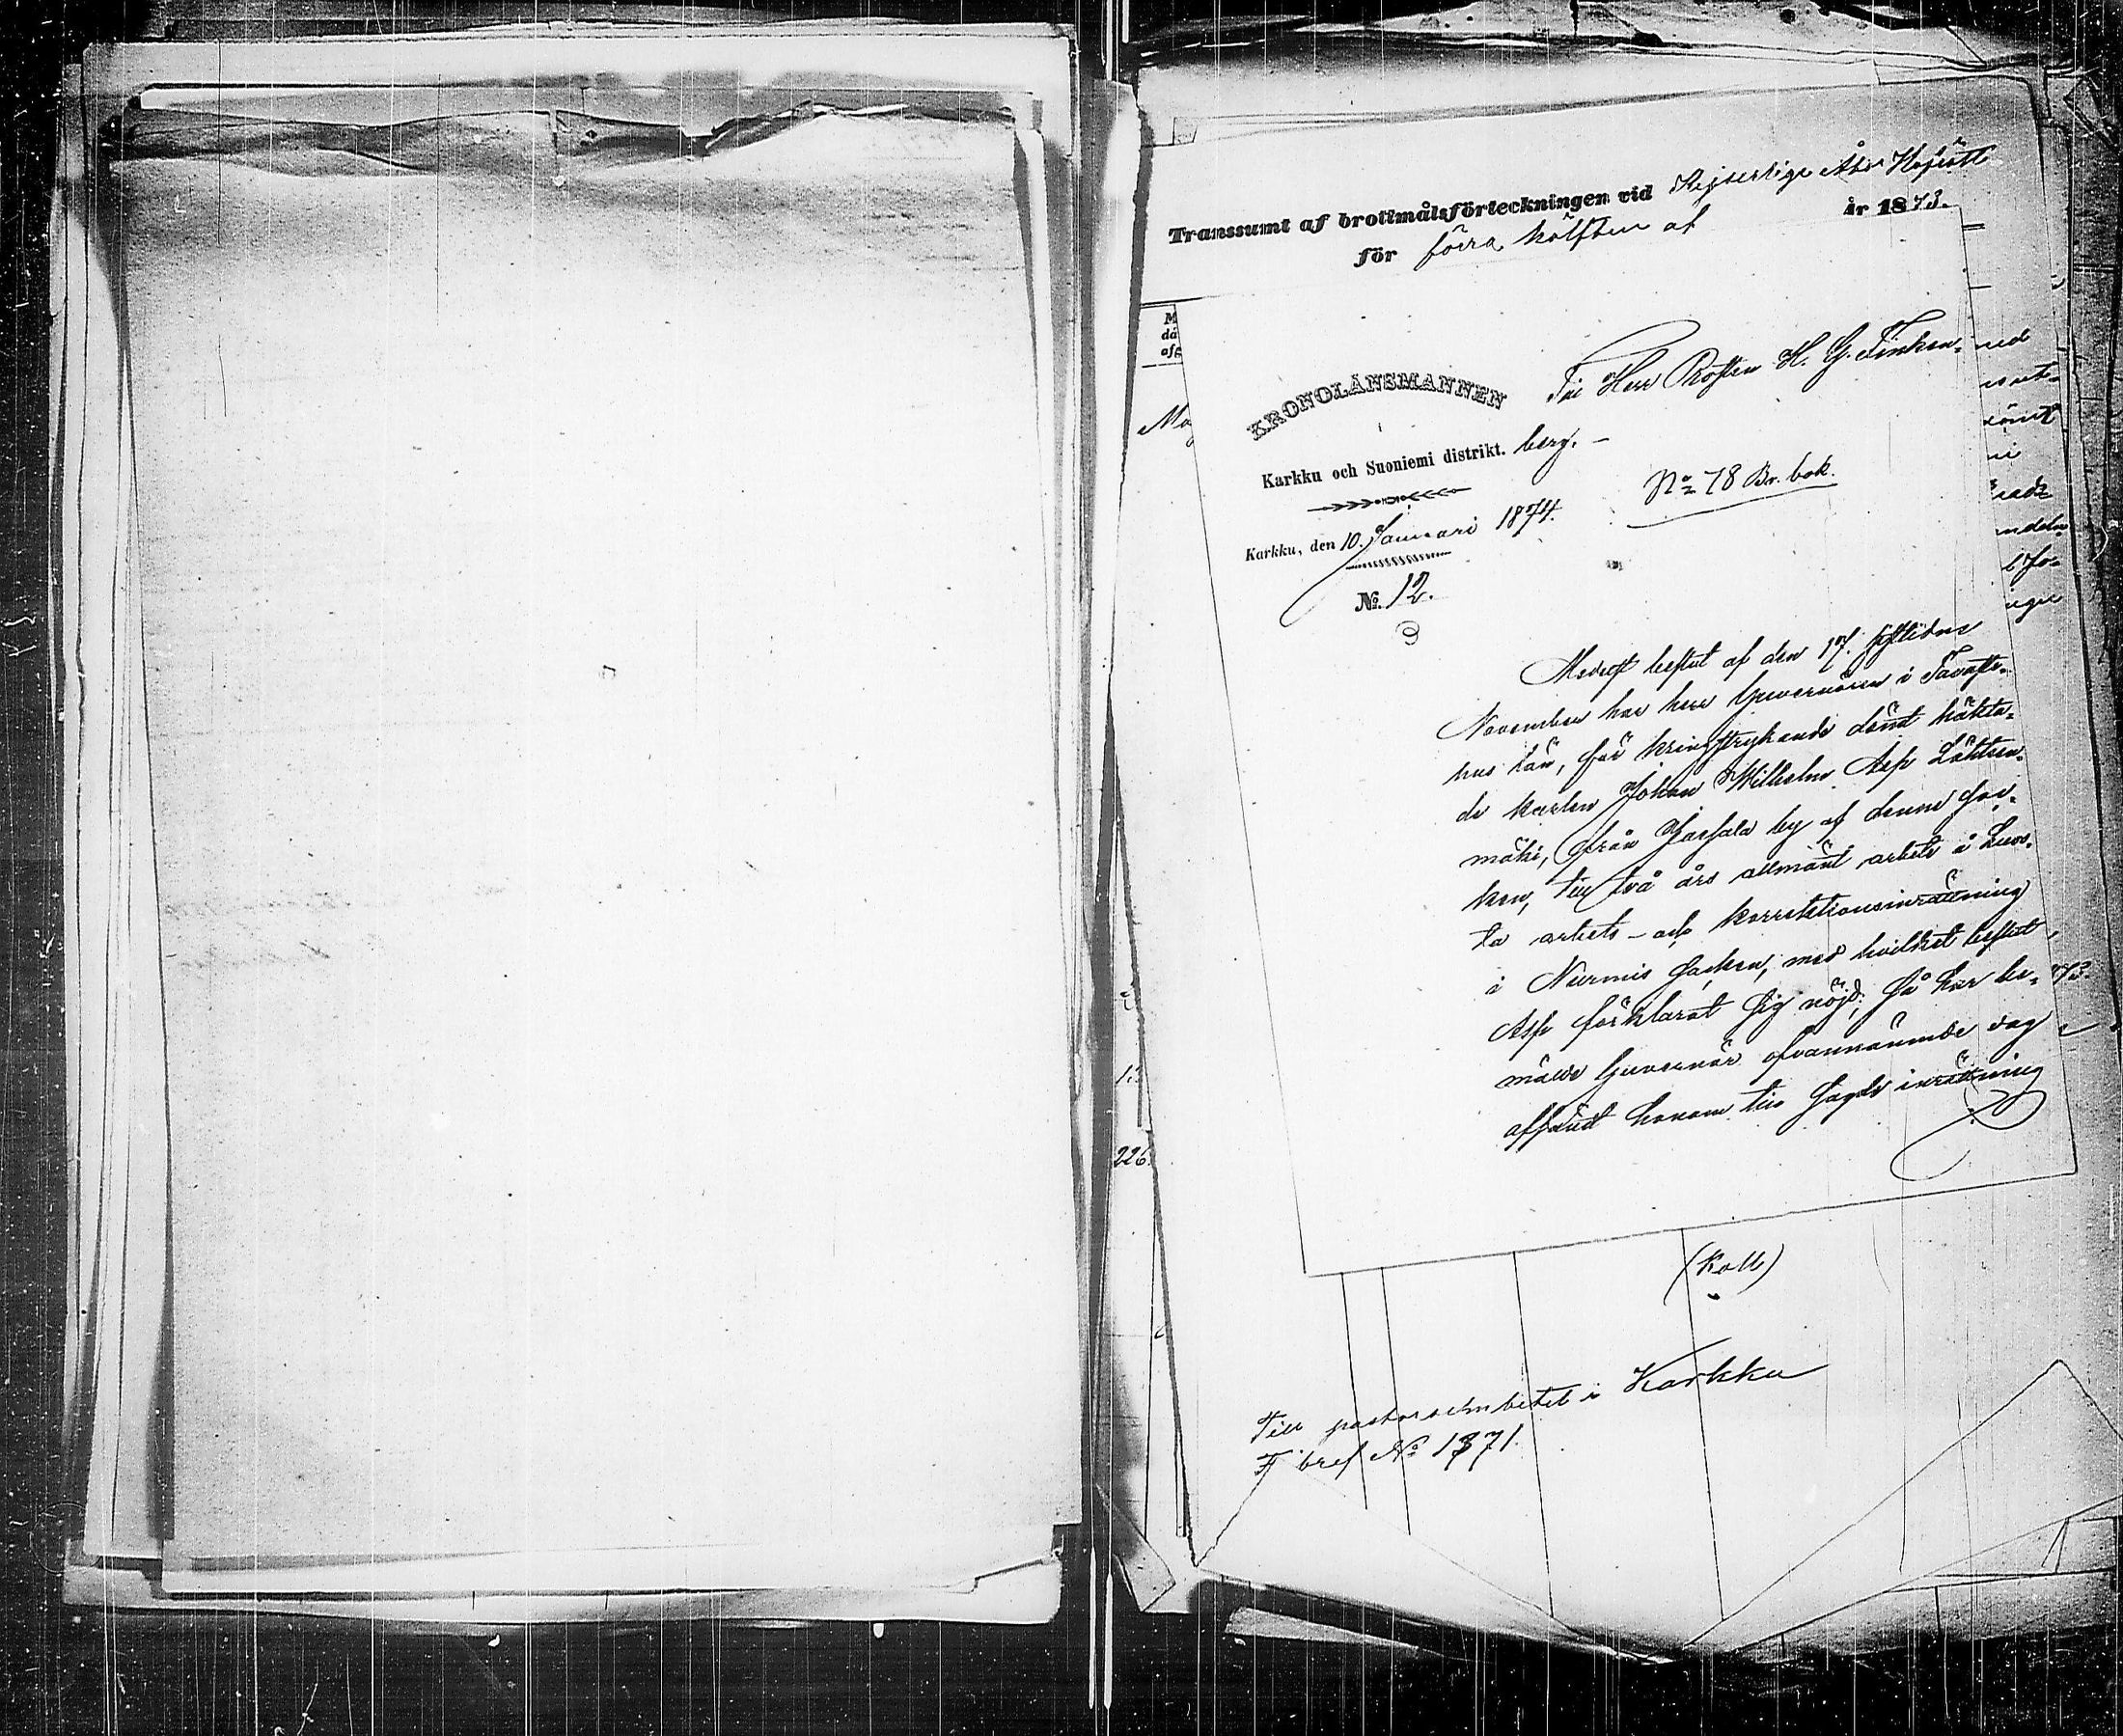 Transsumt af brottmålsförteckningen vid Kejserliga Åbo Hofrätt
för förra hälften af år 1873.
M
då
afg
Maj
KRONOLÄNSMANNEN
Karkku och Suoniemi distrikt.
Karkku, den 10. Januari 1874.
№. 12.
Till Herr Prosten H. G. Finken-
berg. –
No 78 Br. bok.
Medelst beslut af den 17. sistlidne
November har herr Guvernören i Tavaste-
hus län, för kringstrykande dömt häkta-
de karlen Johan Wilhelm Asp Lähteen-
mäki, från Järfala by af denna soc-
ken, till två års allmänt arbete å Luos-
ta arbets- och korrektionsinrättning
i Nurmis socken, med hvilket beslut
Asp förklarat sig nöjd; så har be-
mälde Guvernör ofvannämnde dag
afsändt honom till sagde inrättning
73.
226.
(Koll)
Till pastorsembetet i Karkku
F bref No 1871.